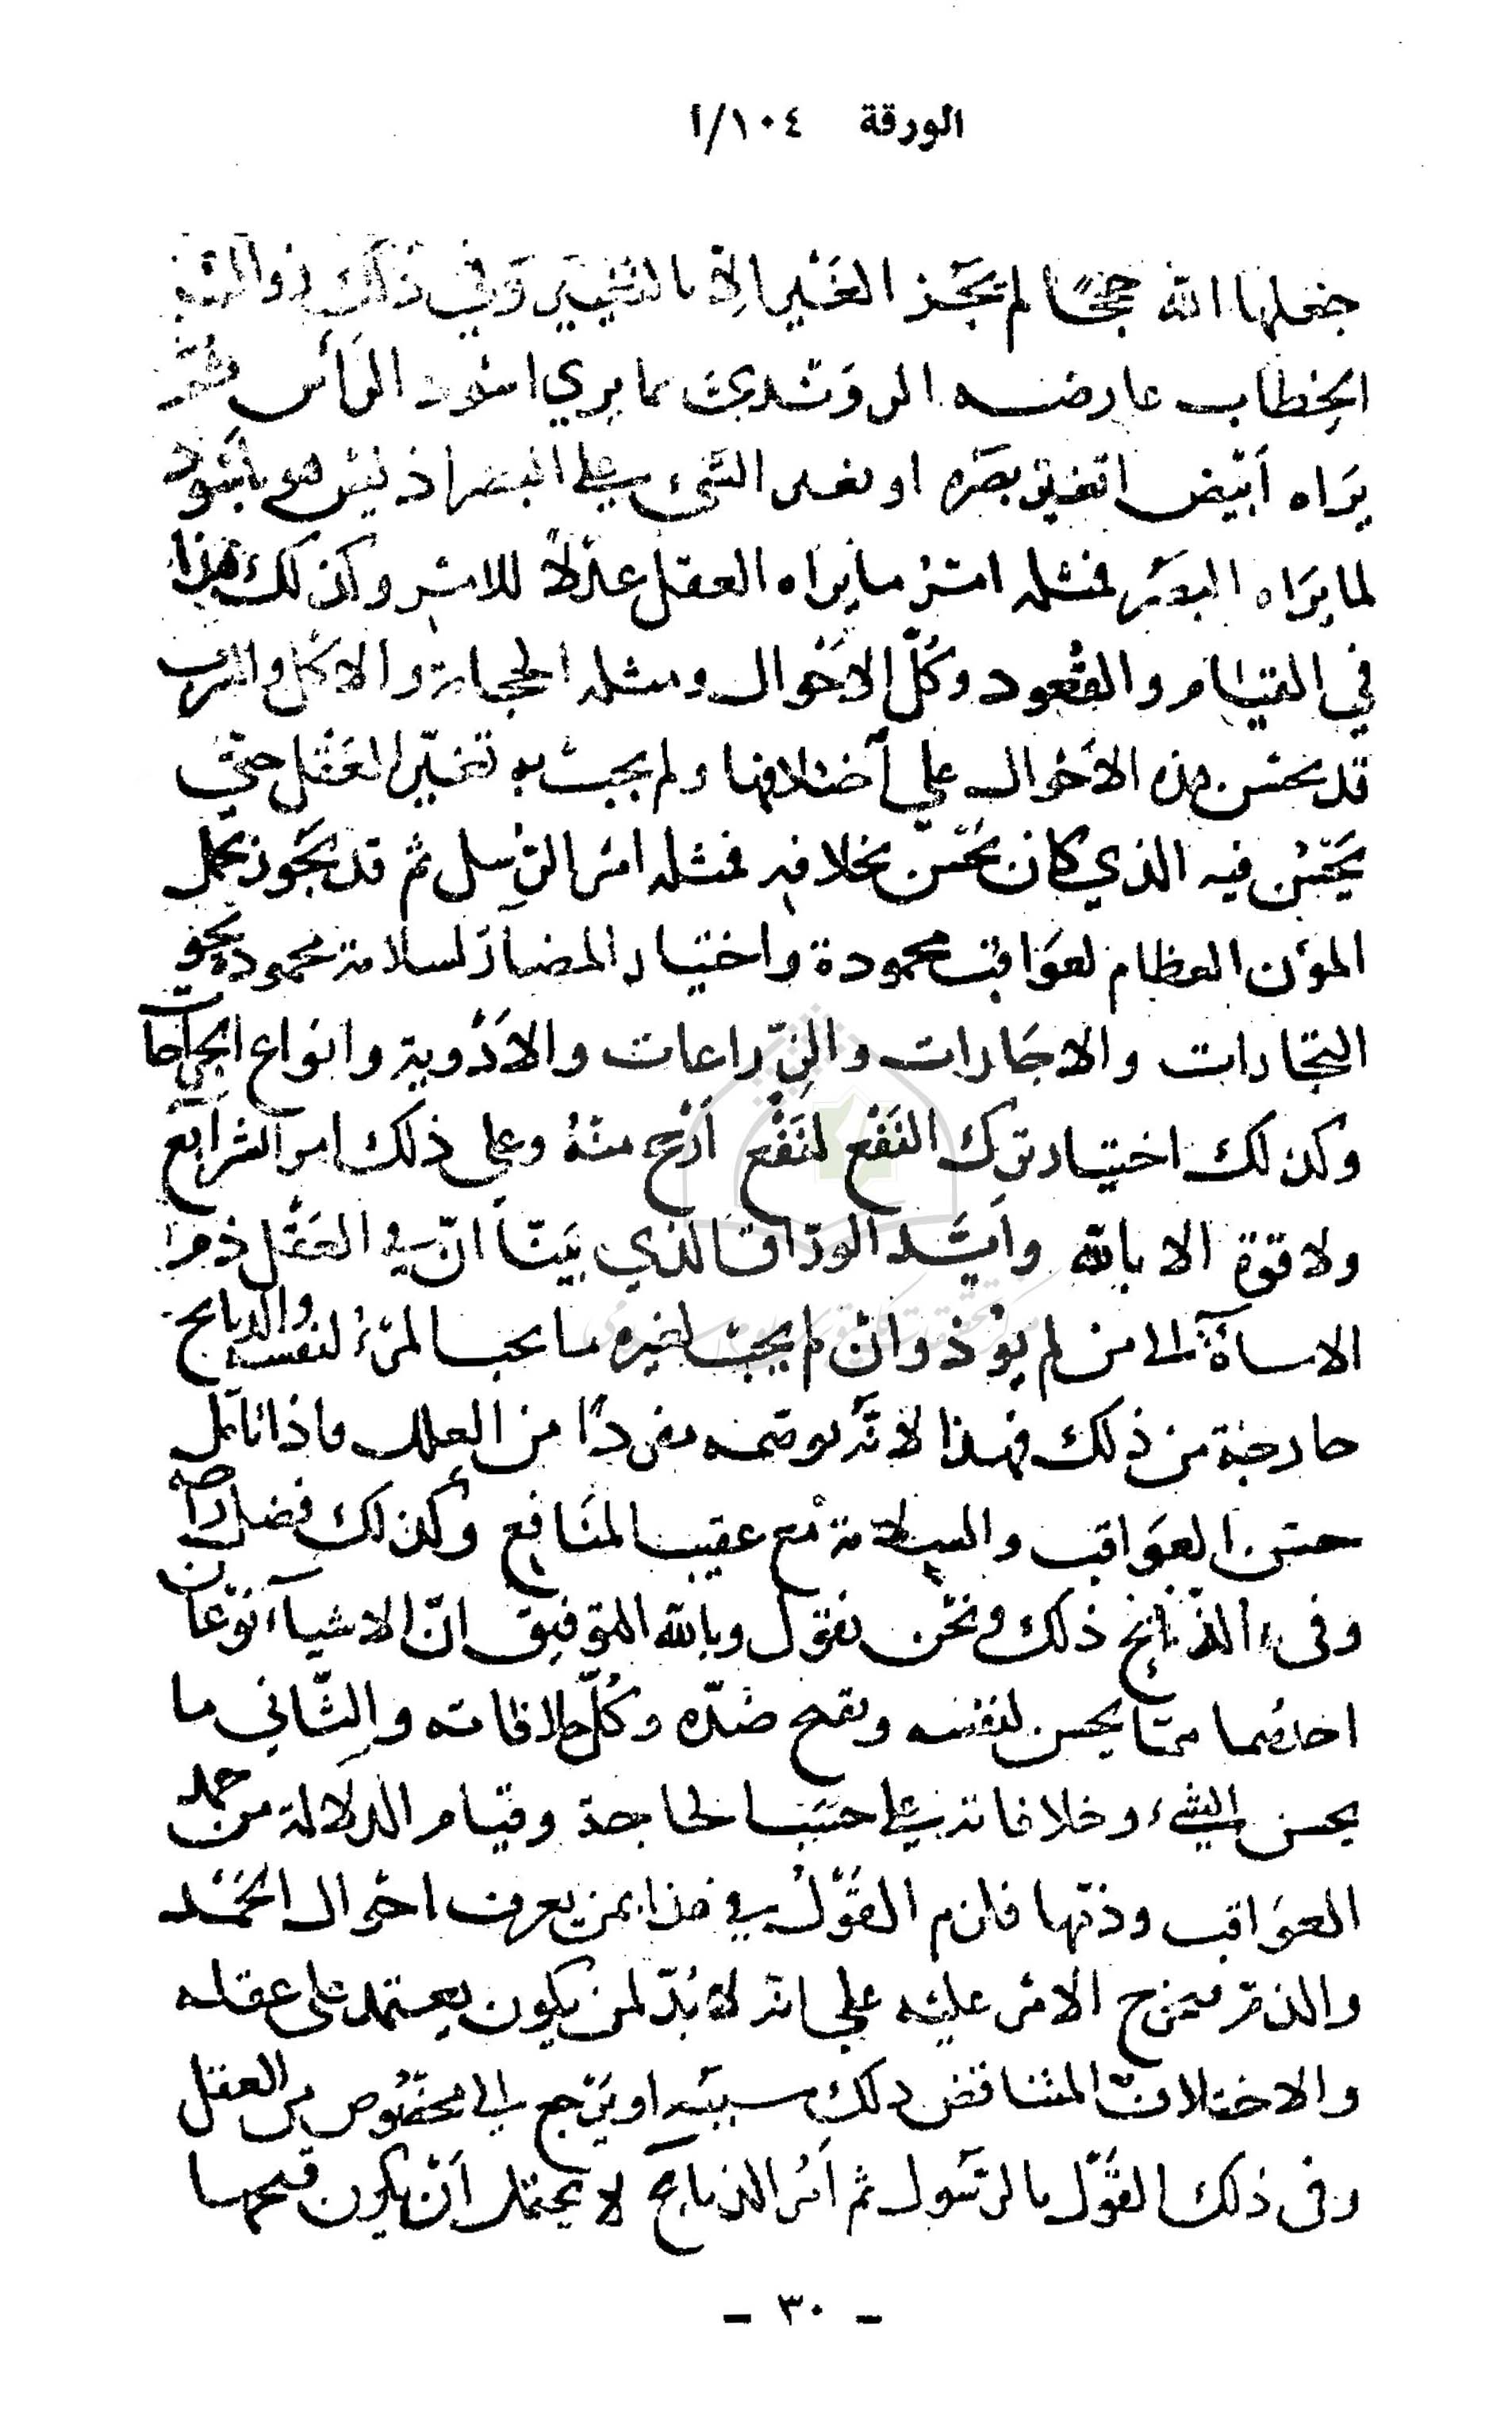 الورقة ١٠٤/أ
جعلها الله حججًا لم يجز التغير الا بالتغيير وفي ذلك زوال
الخطاب عارضه الروندي بما يرى اسود الرأس ثم
يراه أبيض اتغير بصره او تغير الشيء على البصر اذ ليس هو باسود
لما يراه البصر فمثله امر ما يراه العقل عدلًا للامر وكذلك هذا
في القيام والقعود وكل الاحوال ومثله الحجامة والاكل والشرب
قد يحسن هذه الأحوال على اختلافها ولم يجب به تغير العقل حتى
يحسن فيه الذي كان يحسن بخلافه فمثله امر الرسل ثم قد يجوز تحمل
المؤن العظام لعواقب محمودة واختيار المضار لسلامة محمودة نحو
التجارات والاجارات والزراعات والأدوية وانواع الجراحات
وكذلك اختيار ترك النفع لنفع أربح منه وعلى ذلك امر الشرايع
ولا قوة الا بالله وأيّد الوراق الذي بيّنا انّ في العقل ذم
الاساءة الى من لم يؤذ وان لم يجب لغيره ما يحب المرء لنفسه والذبايح
خارجة من ذلك فهذا لانه توهمه مفردًا من العلل فاذا تأمل
حسن العواقب والسلامة مع عقيب المنافع وكذلك فضل
وفي الذبايح ذلك ونحن نقول وبالله التوفيق انّ الاشياء نوعان
احدهما مما يحسن لنفسه ويقبح ضدّه وكلّ خلافاته والثاني ما
يحسن الشيء وخلافاته على حسب الحاجة وقيام الدلالة من حمد
العواقب وذمها فلزم القول في هذا بمن يعرف احوال الحمد
والذم فيخرج الامر عليه على انه لا بدّ لمن يكون يعتمد على عقله
والاختلاف المتناقض ذلك سببه او يرجع الى مخصوص من العقل
وفي ذلك القول بالرسول ثم أمر الذبايح لا يحتمل أن يكون قبحها
- ٣٠ -